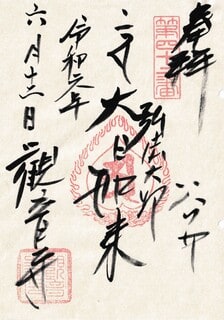 奉拝
第四十二番
弘法大師
大日如来
令和元年
六月十三日
観音寺